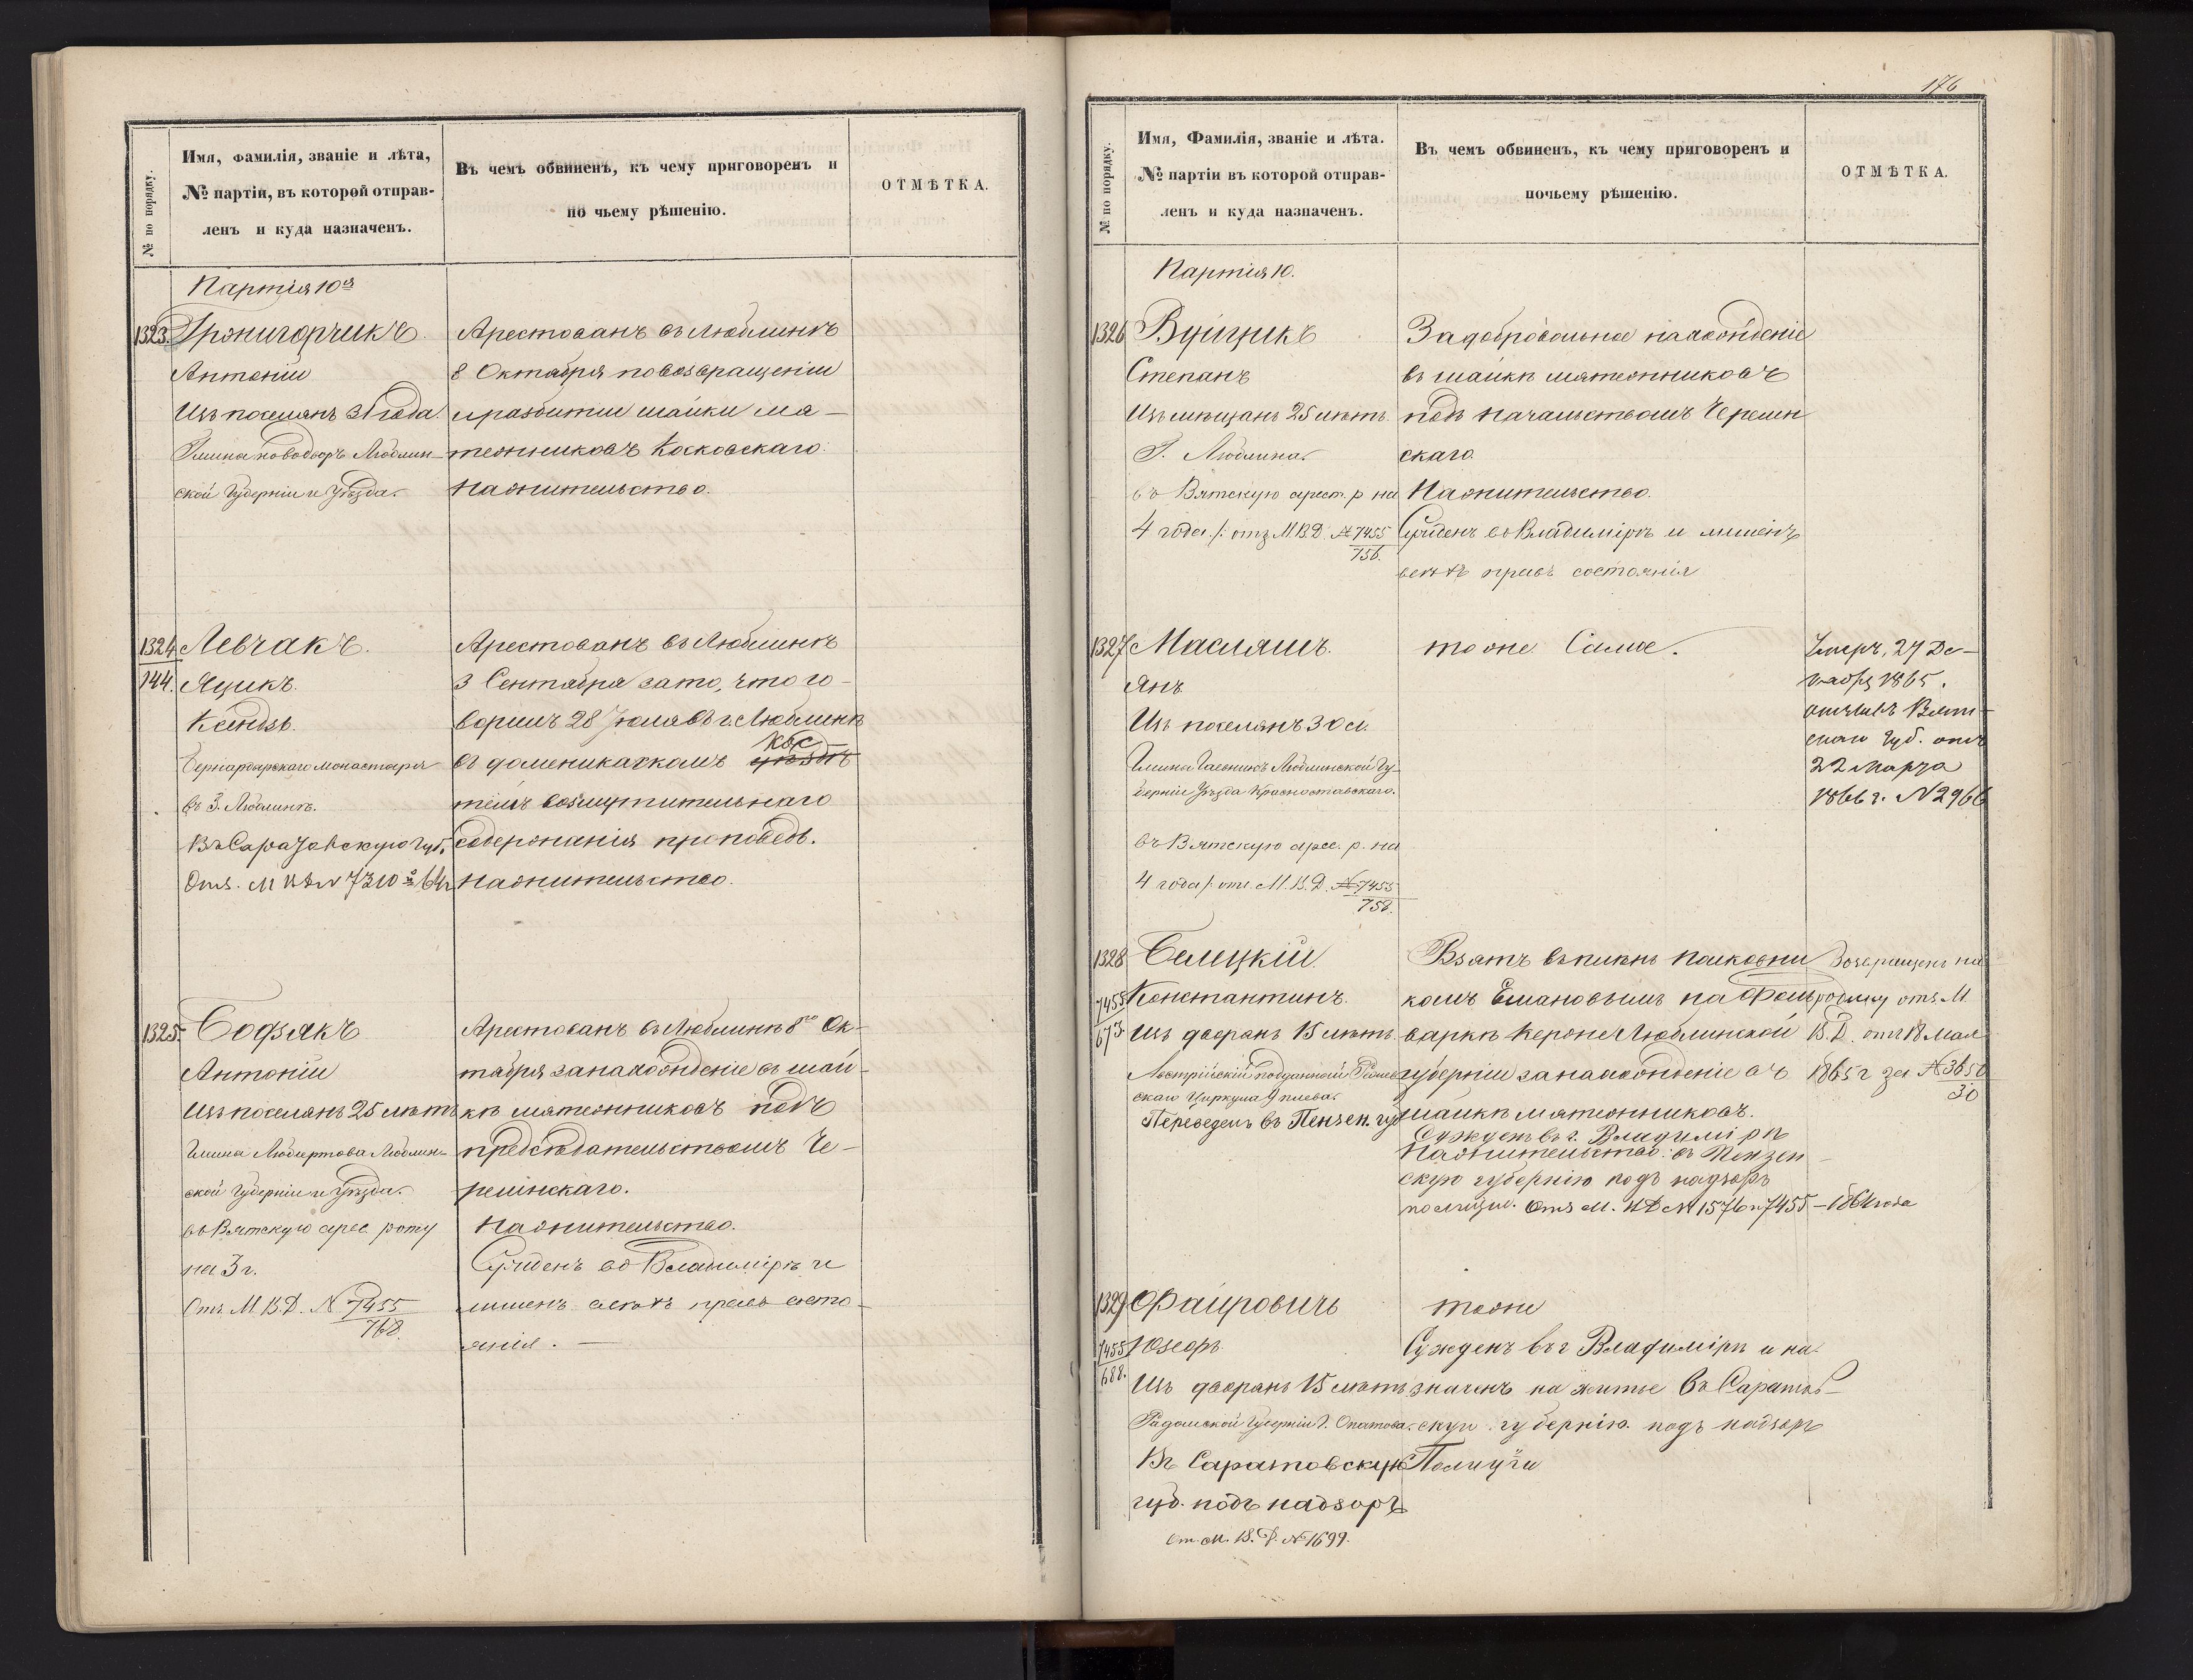 № по порядку.
Имя, Фамилія, званіе и лѣта,
№ партіи, въ которой отправ-
ленъ и куда назначенъ.
Въ чемъ обвиненъ, къ чему приговоренъ и
по чьему рѣшенію.
ОТМѢТКА.
Партія 10я
1323.
Антоній
Изъ поселянъ 31 года.
Гмина Новодворъ Люблин-
ской Губерніи и Уѣзда.
Арестованъ въ Люблинѣ
8 Октября по возвращеніи
и разбитіи шайки мя-
тежниковъ Косковскаго.
На жительство.
1324
144.
Левчакъ.
Яцикъ.
Ксендзъ.
Бернардырскаго монастыря
въ Г. Люблинѣ.
Въ Саратовскую губ.
Отз. М В Д № 7310
Арестованъ въ Люблинѣ
3 Сентября за то, что го-
ворилъ 28 Іюля въ г. Люблинѣ
въ доминиканскомъ кос
тёлѣ возмутительнаго
содержанія проповѣдь.
На жительство.
1325.
Софякъ
Антоній
Изъ поселянъ 25 лѣтъ
Гмина Любартова Люблин-
ской Губерніи и Уѣзда.
въ Вятскую арес. роту
на 3 г.
Отз. М. В. Д. № 7455
768.
Арестованъ въ Люблинѣ 8го Ок-
тября за нахожденіе въ шай-
кѣ мятежниковъ подъ
предсѣдательствомъ Че-
решнскаго.
На жительство.
Сужденъ во Владимірѣ и
лишенъ всѣхъ правъ состо-
янія. —
176
№ по порядку.
Имя, Фамилія, званіе и лѣта.
№ партіи въ которой отправ-
ленъ и куда назначенъ.
Въ чемъ обвиненъ, къ чему приговоренъ и
почьему рѣшенію.
ОТМѢТКА.
Партія 10.
1326
Вуицикъ
Степанъ
Изъ мѣщанъ 25 лѣтъ.
Г. Люблина.
въ Вятскую арест. р на
4 года /: отз М.В.Д. № 7455
756.
За добровольное нахожденіе
въ шайкѣ мятежниковъ
подъ начальствомъ Черешн
скаго.
На жительство.
Сужденъ во Владимірѣ и лишенъ
всѣхъ правъ состоянія
1327
Маслянъ.
Янъ
Изъ поселянъ 30 л.
Губ-
берніи Уѣзда Красноставскаго.
въ Вятскую арес. р. на
4 года /: отз. М. В. Д. № 7455
758.
тоже самое.
Умеръ, 27 Де-
кабря 1865.
отзывъ Вят-
скаго Губ. отъ
22 Марта
1866 г. № 2966
1328
7455
673
Белецкій
Константинъ.
Изъ дворянъ 15 лѣтъ.
Австрійскій подданный
скаго Циркула
Переведенъ въ Пензен. губ
Взятъ въ плѣнъ полковни
комъ Емановымъ на Фоль
варкѣ Керпне Люблинской
губерніи за нахожденіе въ
шайкѣ мятежниковъ.
Сужденъ въ г. Владимірѣ
На жительство: въ Пензен-
скую губернію подъ надзоръ
полиціи. Отз М. В Д № 1576 и 7455 — 1864 года
Возвращенъ на
родину отз. М.
В. Д. отъ 18 Мая
1865 г за № 3650
30
1329
7455
688.
Файровичъ
Юзефъ.
Изъ дворянъ 15 лѣтъ
Радомской Губерніи Г. Опатова.
Въ Саратовскую
губ. подъ надзоръ
От. М. В. Д. № 1699.
тоже
Сужденъ въ г Владимірѣ и на
значенъ на житье въ Саратов-
скую губернію. подъ надзоръ
Полиціи